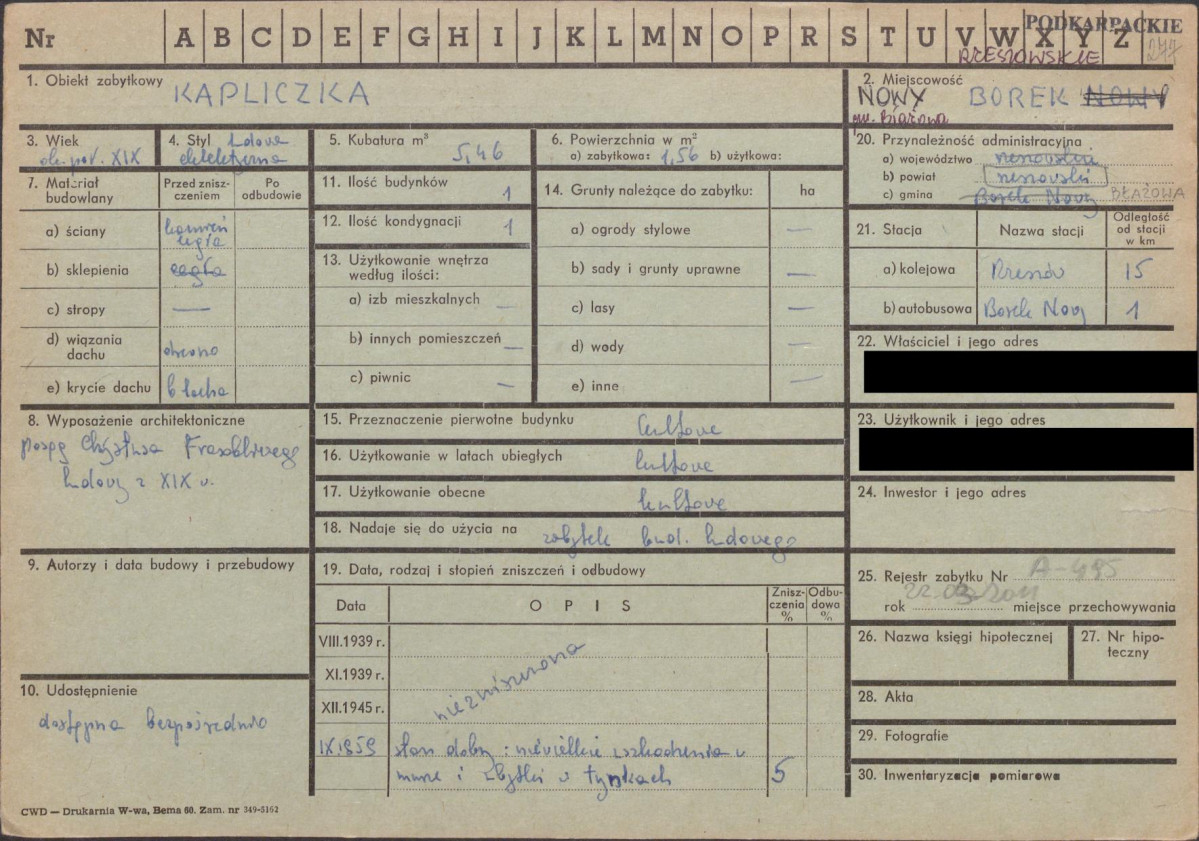 Nr A B C D E F G H I J K L M N O P R S T U V W X Y Z
PODKARPACKIE
277
RZESZOWSKIE
1. Obiekt zabytkowy
KAPLICZKA
2. Miejscowość
NOWY BOREK NOWY
gm. Błażowa
3. Wiek
ok. poł. XIX
4. Styl ludowa
eklektyczna
5. Kubatura m³
5,46
6. Powierzchnia w m²
a) zabytkowa: 1,56 b) użytkowa:
20. Przynależność administracyjna
a) województwo rzeszowskie
b) powiat rzeszowski
c) gmina Borek Nowy BŁAŻOWA
7. Materiał
budowlany
Przed znisz-
czeniem
Po
odbudowie
a) ściany kamień
cegła
b) sklepienia cegła
c) stropy —
d) wiązania
dachu drewno
e) krycie dachu blacha
11. Ilość budynków 1
12. Ilość kondygnacji 1
13. Użytkowanie wnętrza
według ilości:
a) izb mieszkalnych —
b) innych pomieszczeń —
c) piwnic —
14. Grunty należące do zabytku: ha
a) ogrody stylowe —
b) sady i grunty uprawne —
c) lasy —
d) wody —
e) inne —
21. Stacja Nazwa stacji
Odległość
od stacji
w km
a) kolejowa Rzeszów 15
b) autobusowa Borek Nowy 1
22. Właściciel i jego adres
23. Użytkownik i jego adres
8. Wyposażenie architektoniczne
posąg Chrystusa Frasobliwego
ludowy z XIX w.
15. Przeznaczenie pierwotne budynku kultowe
16. Użytkowanie w latach ubiegłych kultowe
17. Użytkowanie obecne kultowe
18. Nadaje się do użycia na zabytek bud. ludowego
24. Inwestor i jego adres
9. Autorzy i data budowy i przebudowy
19. Data, rodzaj i stopień zniszczeń i odbudowy
Data OPIS
Znisz-
czenia
%
Odbu-
dowa
%
VIII.1939 r.
XI.1939 r.
XII.1945 r.
niezniszczona
IX.1959 stan dobry: niewielkie uszkodzenia w
murze i ubytki w tynkach 5
25. Rejestr zabytku Nr A-495
22.03.2011
rok miejsce przechowywania
26. Nazwa księgi hipotecznej
27. Nr hipo-
teczny
28. Akta
29. Fotografie
30. Inwentaryzacja pomiarowa
10. Udostępnienie
dostępna bezpośrednio
CWD — Drukarnia W-wa, Bema 60. Zam. nr 349-5162